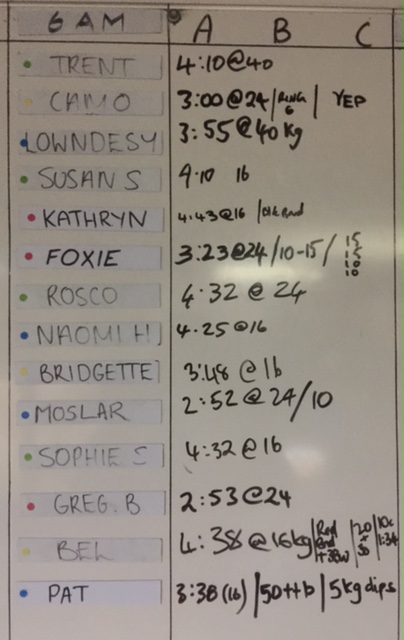 6AM A B C
TRENT 4:10@40
CAMO 3:00@24/RING 6 | YEP
LOWNDESY 3:55@40kg
SUSAN S 4.10 16
KATHRYN 4:43@16 /
FOXIE 3:23@24/10-15/ 15 15 10 10
ROSCO 4.32 @ 24
NAOMI H 4.25@16
BRIDGETTE 3:48 @ 16
MOSLAR 2:52 @ 24/10
SOPHIE S 4:32 @ 16
GREG.B 2:53@24
BEL 4:38@16kg | Red Band | 20 x 30 | 1:34
PAT 3:38 (16) | 50ttb | 5kg dips